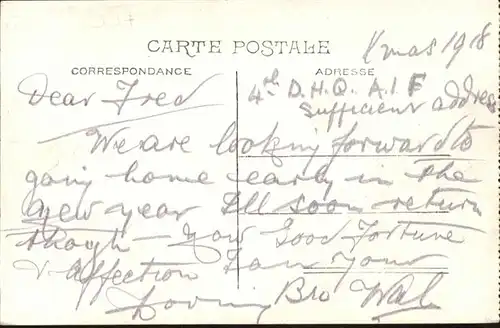 Xmas 1918
CARTE POSTALE
CORRESPONDANCE
ADRESSE
4th D.H.Q. A.I.F
Sufficient address
Dear Fred
We are looking forward to
going home early in the
New year I'll soon return
though — your Good Fortune
& affection I am your
loving Bro Wal